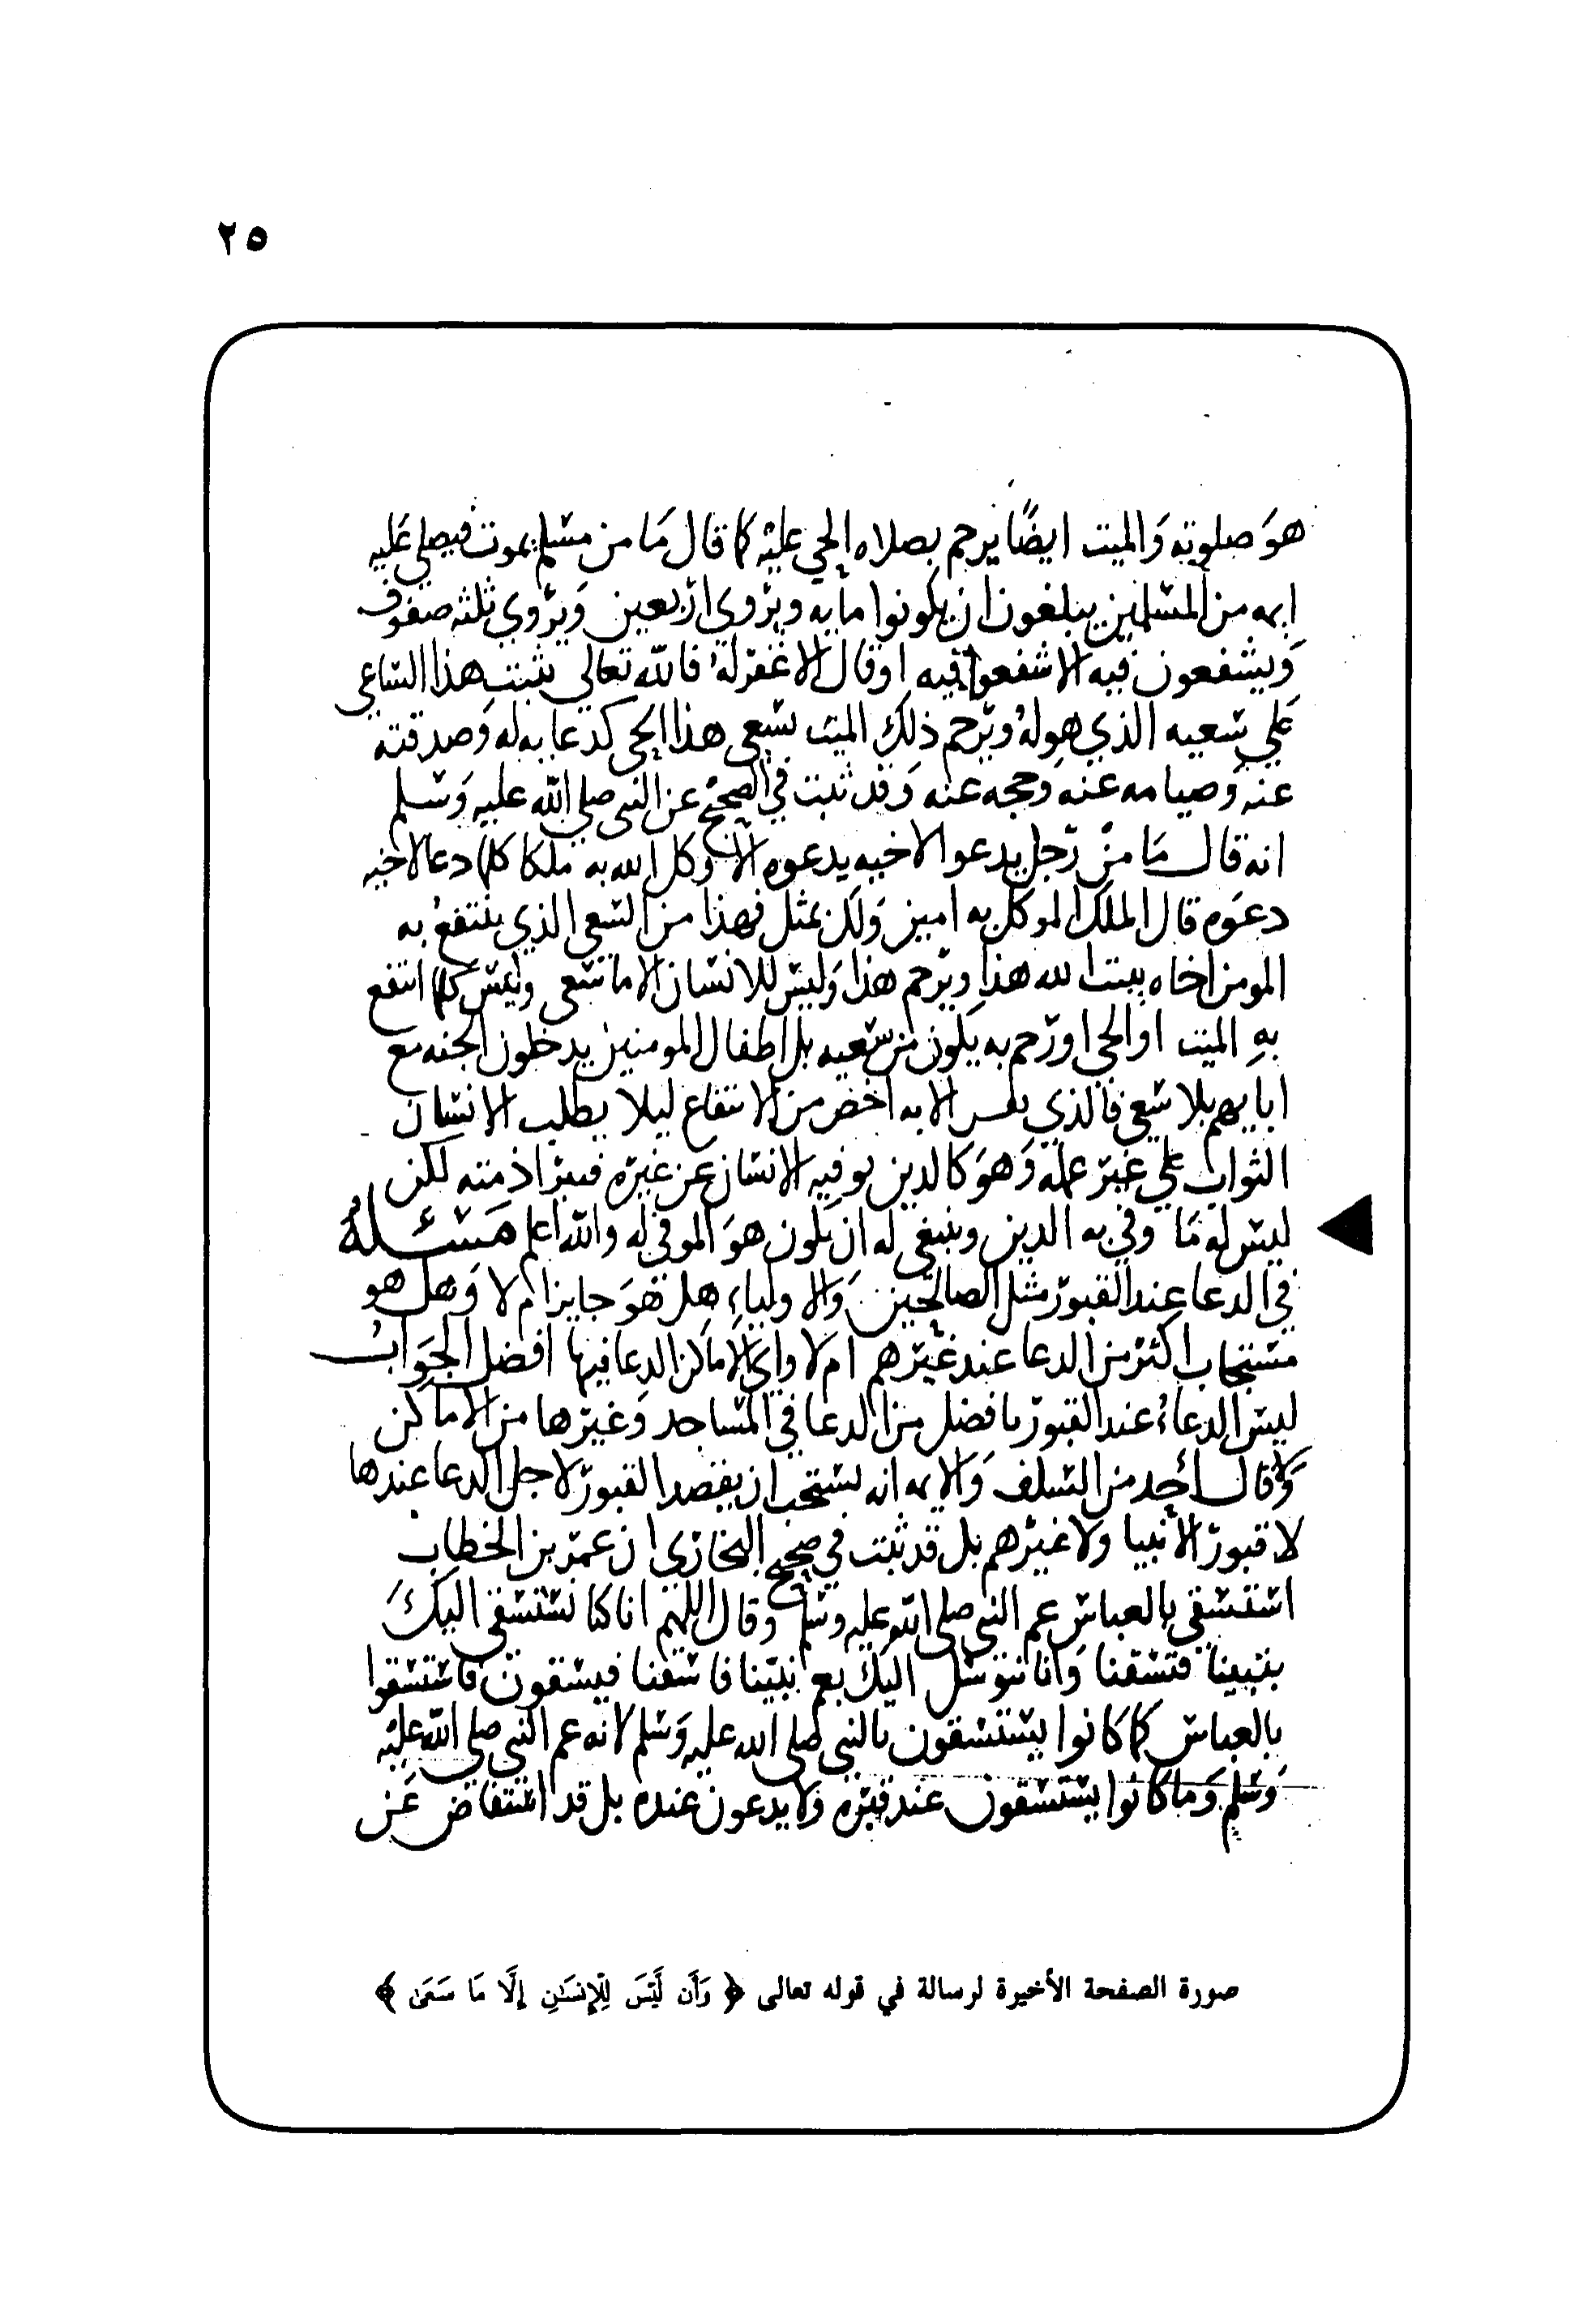 ٢٥
هو صلوته والميت ايضًا يرحم بصلاه الحي عليه كما قال ما من مسلم يموت فيصلي عليه
امه من المسلمين يبلغون ان يكونوا مايه ويروي اربعين ويروي ثلثه صفوف
ويشفعون فيه الا شفعوا فيه او قال الا غفر له فالله تعالي يثيب هذا الساعي
علي سعيه الذي هو له ويرحم ذلك الميت بسعي هذا الحي كدعايه له وصدقته
عنه وصيامه عنه وحجه عنه وقد ثبت في الصحيح عن النبي صلي الله عليه وسلم
انه قال ما من رجل يدعوا لاخيه يدعوه الا وكل الله به ملكا كلما دعا لاخيه
دعوه قال الملك الموكل به امين ولك بمثل فهذا من السعي الذي ينتفع به
المومن اخاه يثيب الله هذا ويرحم هذا وليس للانسان الا ما سعي وليس كلما انتفع
به الميت او الحي او رحم به يكون من سعيه بل اطفال المومنين يدخلون الجنه مع
ابايهم بلا سعي فالذي الايه اخص من الانتفاع ليلا يطلب الانسان
الثواب علي غير عمله وهو كالدين يوفيه الانسان عن غيره فتبرا ذمته لكن
ليس له ما وفي به الدين وينبغي له ان يكون هو الموفي له والله اعلم مسئلة
في الدعا عند القبور مثل الصالحين والاولياء هل هو جايز ام لا وهل هو
مستجاب اكثر من الدعا عند غيرهم ام لا واي الاماكن الدعا فيها افضل الجواب
ليس الدعاء عند القبور بافضل من الدعا في المساجد وغيرها من الاماكن
ولا قال احد من السلف والايمه انه يستحب ان يقصد القبور لاجل الدعا عندها
لا قبور الانبيا ولا غيرهم بل قد ثبت في صحيح البخاري ان عمر بن الخطاب
استسقي بالعباس عم النبي صلي الله عليه وسلم وقال اللهم انا كنا نستسقي اليك
بنبينا فتسقنا وانا نتوسل اليك بعم نبينا فاسقنا فيسقون فاستسقوا
بالعباس كما كانوا يستسقون بالنبي صلي الله عليه وسلم لانه عم النبي صلي الله عليه
وسلم وما كانوا يستسقون عند قبره ولا يدعون عنده بل قد استفاض عن
صورة الصفحة الأخيرة لرسالة في قوله تعالى ﴿ وَأَن لَّيْسَ لِلْإِنسَٰنِ إِلَّا مَا سَعَىٰ ﴾